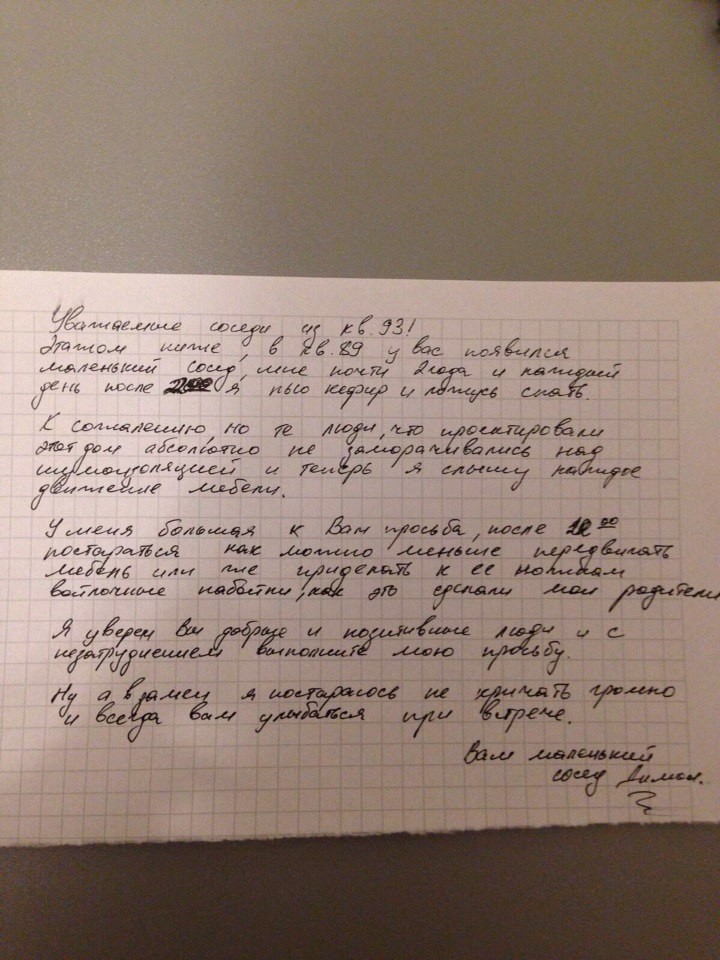 Уважаемые соседи из кв. 93!
Этажом ниже, в кв. 89 у вас появился
маленький сосед, мне почти 2 года и каждый
день после я пью кефир и ложусь спать.
К сожалению, но те люди, что проектировали
этот дом абсолютно не заморачивались над
шумоизоляцией и теперь я слышу каждое
движение мебели.
У меня большая к Вам просьба, после 00
постараться как можно меньше передвигать
мебель или же приделать к ее ножкам
войлочные набойки, как это сделали мои родители
Я уверен Вы добрые и позитивные люди и с
незатруднением выполните мою просьбу.
Ну а взамен я постараюсь не кричать громко
и всегда вам улыбаться при встрече.
Вам маленький
сосед